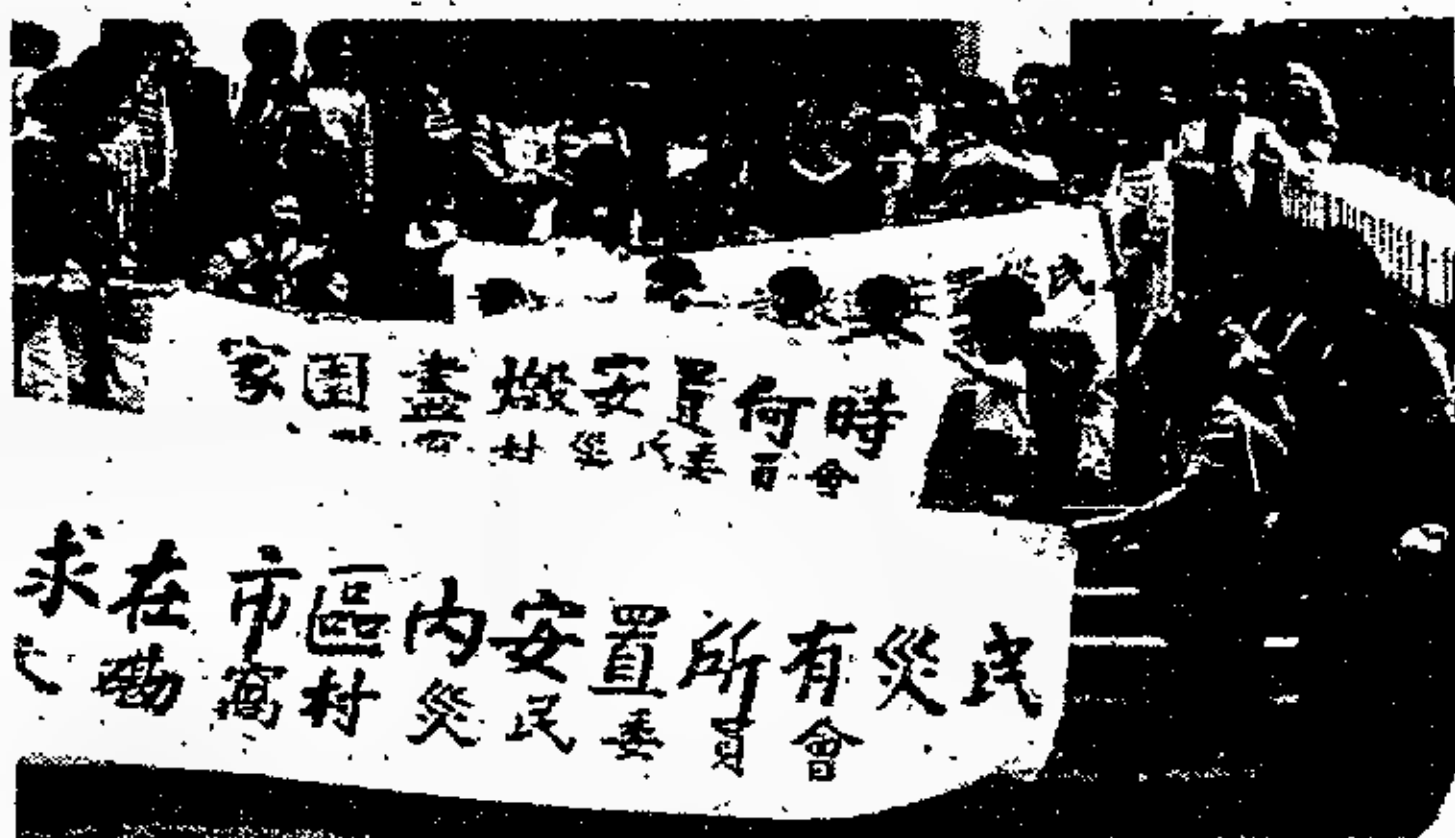 災民
家園盡燬安置何時
村災民委員會
求在市區內安置所有災民
磡窩村災民委員會